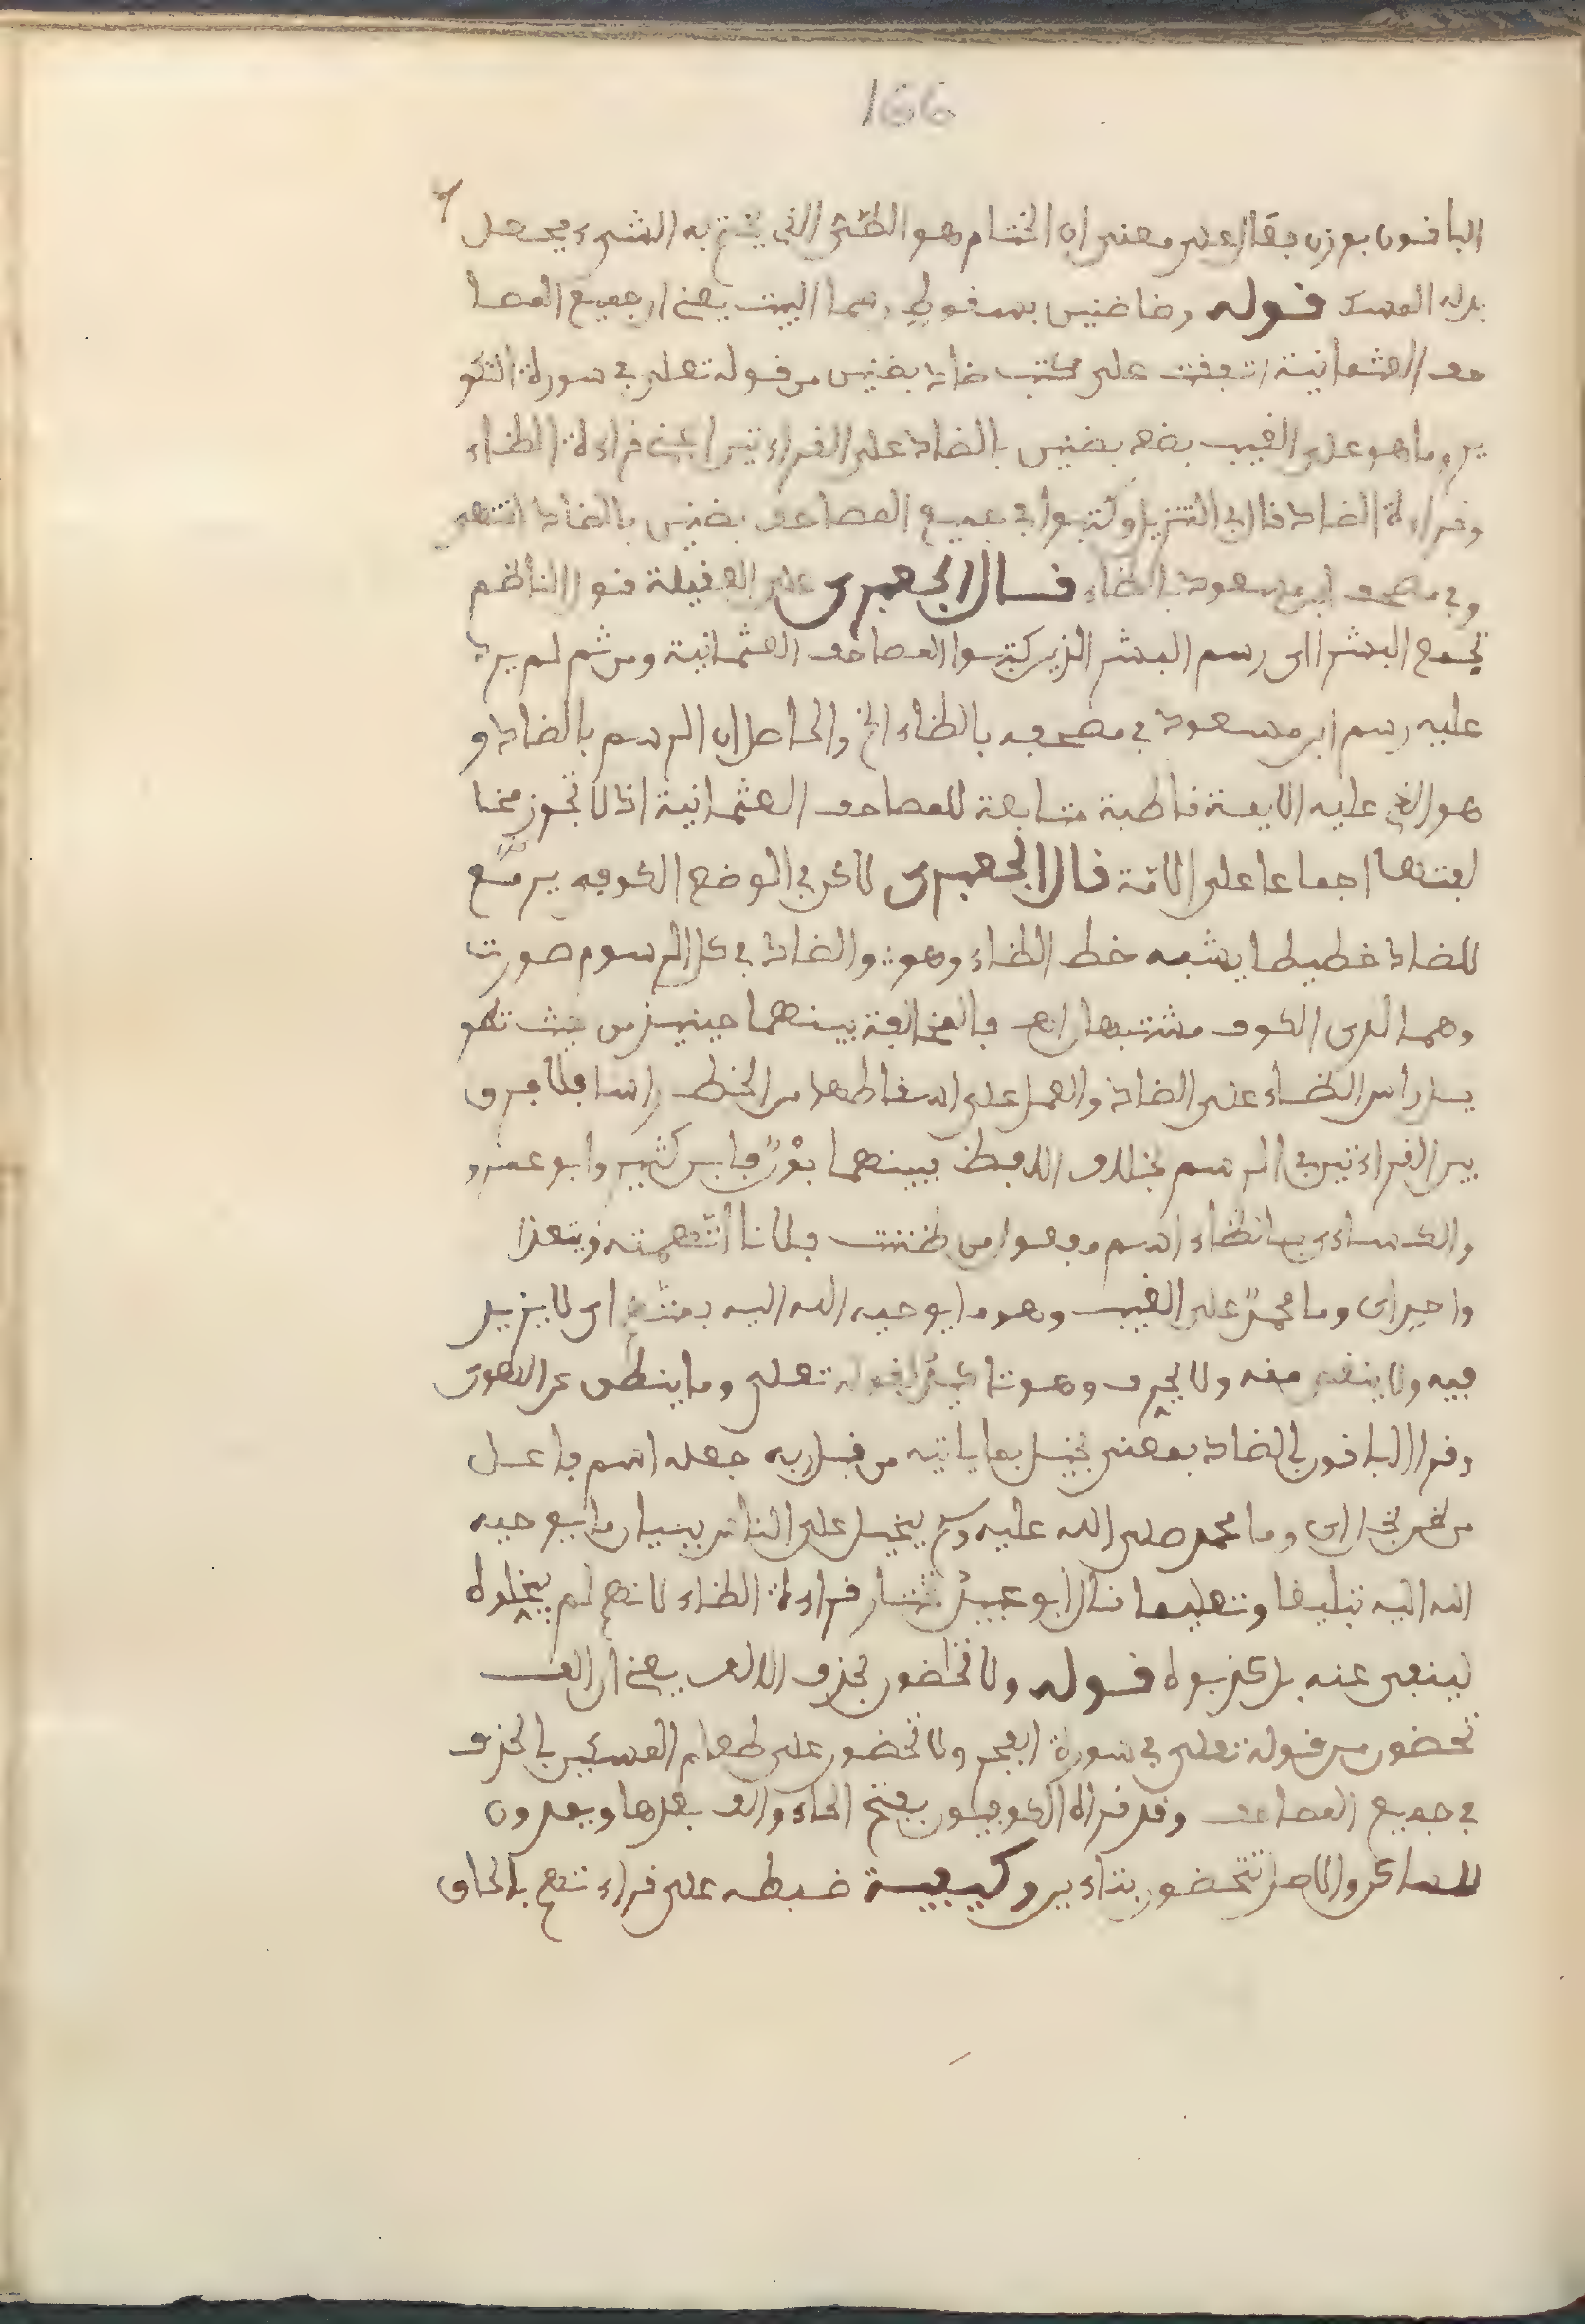 166
الباقون بوزن فعال على معنى ان الختام هو الطين الذي يختم به الشيء يجعل
بدله المسك قوله وضاد ضنين بسقوط رسما البيت يعني ان جميع المصا
حف العثمانية اتفقت على كتب ضاد بضنين من قوله تعلى في سورة التكو
ير وما هو على الغيب بضنين بالضاد على القراءتين اعني قراءة الظاء
وقراءة الضاد قال في التنزيل وكتبوا في جميع المصاحف بضنين بالضاد انتهى
وفي مصحف ابن مسعود بالظاء قال الجعبري على العقيلة قول الناظم
تجمع البشر اى رسم البشر الذين كتبوا المصاحف العثمانية ومن ثم لم يرد
عليه رسم ابن مسعود في مصحفه بالظاء الخ والحاصل ان الرسم بالضاد و
هو الذي عليه الايمة قاطبة متابعة للمصاحف العثمانية اذ لا تجوز مخا
لفتها اجماعا على الامة قال الجعبرى لاكن في الوضع الكوفي يرفع
للضاد خطيطا يشبه خط الظاء وهو والضاد في كل الرسوم صورت
وهما لدى الكوف مشتبهان اهـ فالمخالفة بينهما حينيذ من حيث تطو
يل راس الظاء على الضاد والعمل على اسقاطها من الخط راسا فلا فرق
بين القراءتين في الرسم بخلاف اللفظ فبينهما بون فابن كثير وابو عمرو
والكساءي بالظاء اسم مفعول من ظننت فلانا اتهمته ويتعدا
واحد اى وما محمد على الغيب وهو ما يوحيه الله اليه بمتهم اى لا يزيد
فيه ولا ينقص منه ولا يحرف وهو تاكيد لقوله تعلى وما ينطق عن الهوى
وقرا الباقون بالضاد بمعنى بخيل بما ياتيه من قبل ربه جعله اسم فاعل
من ضن بخل اى وما محمد صلى الله عليه وسلم يبخل على الناس ببيان ما يوحيه
الله اليه تبليغا وتعليما قال ابو عبيد نختار قراءة الظاء لانهم لم يبخلوه
لينفى عنه بل كذبوه قوله ولا تحضون بحذف الالف يعني ان الف
تحضون من قوله تعلى في سورة الفجر ولا تحضون على طعام المسكين بالحذف
في جميع المصاحف وقد قراه الكوفيون بفتح الحاء والف بعدها ويمدون
للساكن والاصل تتحضون بتاءين وكيفية ضبطه على قراءتهم بالحاق